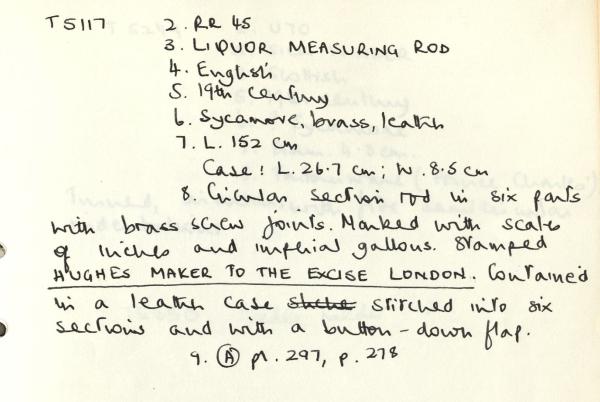 T5117 2. RR 45
3. LIQUOR MEASURING ROD
4. English
5. 19th Century
6. Sycamore, brass, leather
7. L. 152 cm
Case: L. 26.7 cm; W. 8.5 cm
8. Circular section rod in six parts
with brass screw joints. Marked with scales
of inches and imperial gallons. Stamped
HUGHES MAKER TO THE EXCISE LONDON. Contained
in a leather case stitched into six
sections and with a button-down flap.
9. (A) pl. 297, p. 278